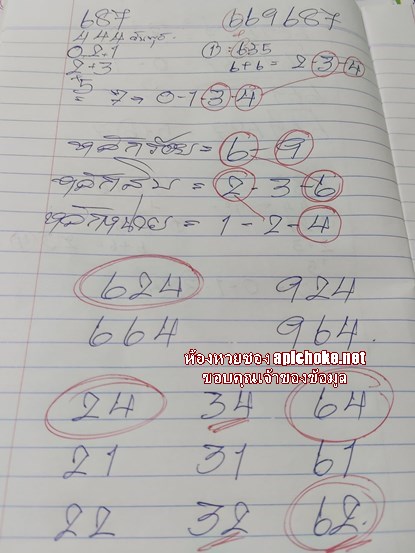 687 669687
444 จันทร์
021 ① = 635
2+3 6+6 = 2-3-4
5
= 7 → 0-1-3-4
หลักร้อย = 6-9
หลักสิบ = 2-3-6
หลักหน่วย = 1-2-4
624 924
664 964
ห้องหวยซอง apichoke.net
ขอบคุณเจ้าของข้อมูล
24 34 64
21 31 61
22 32 62